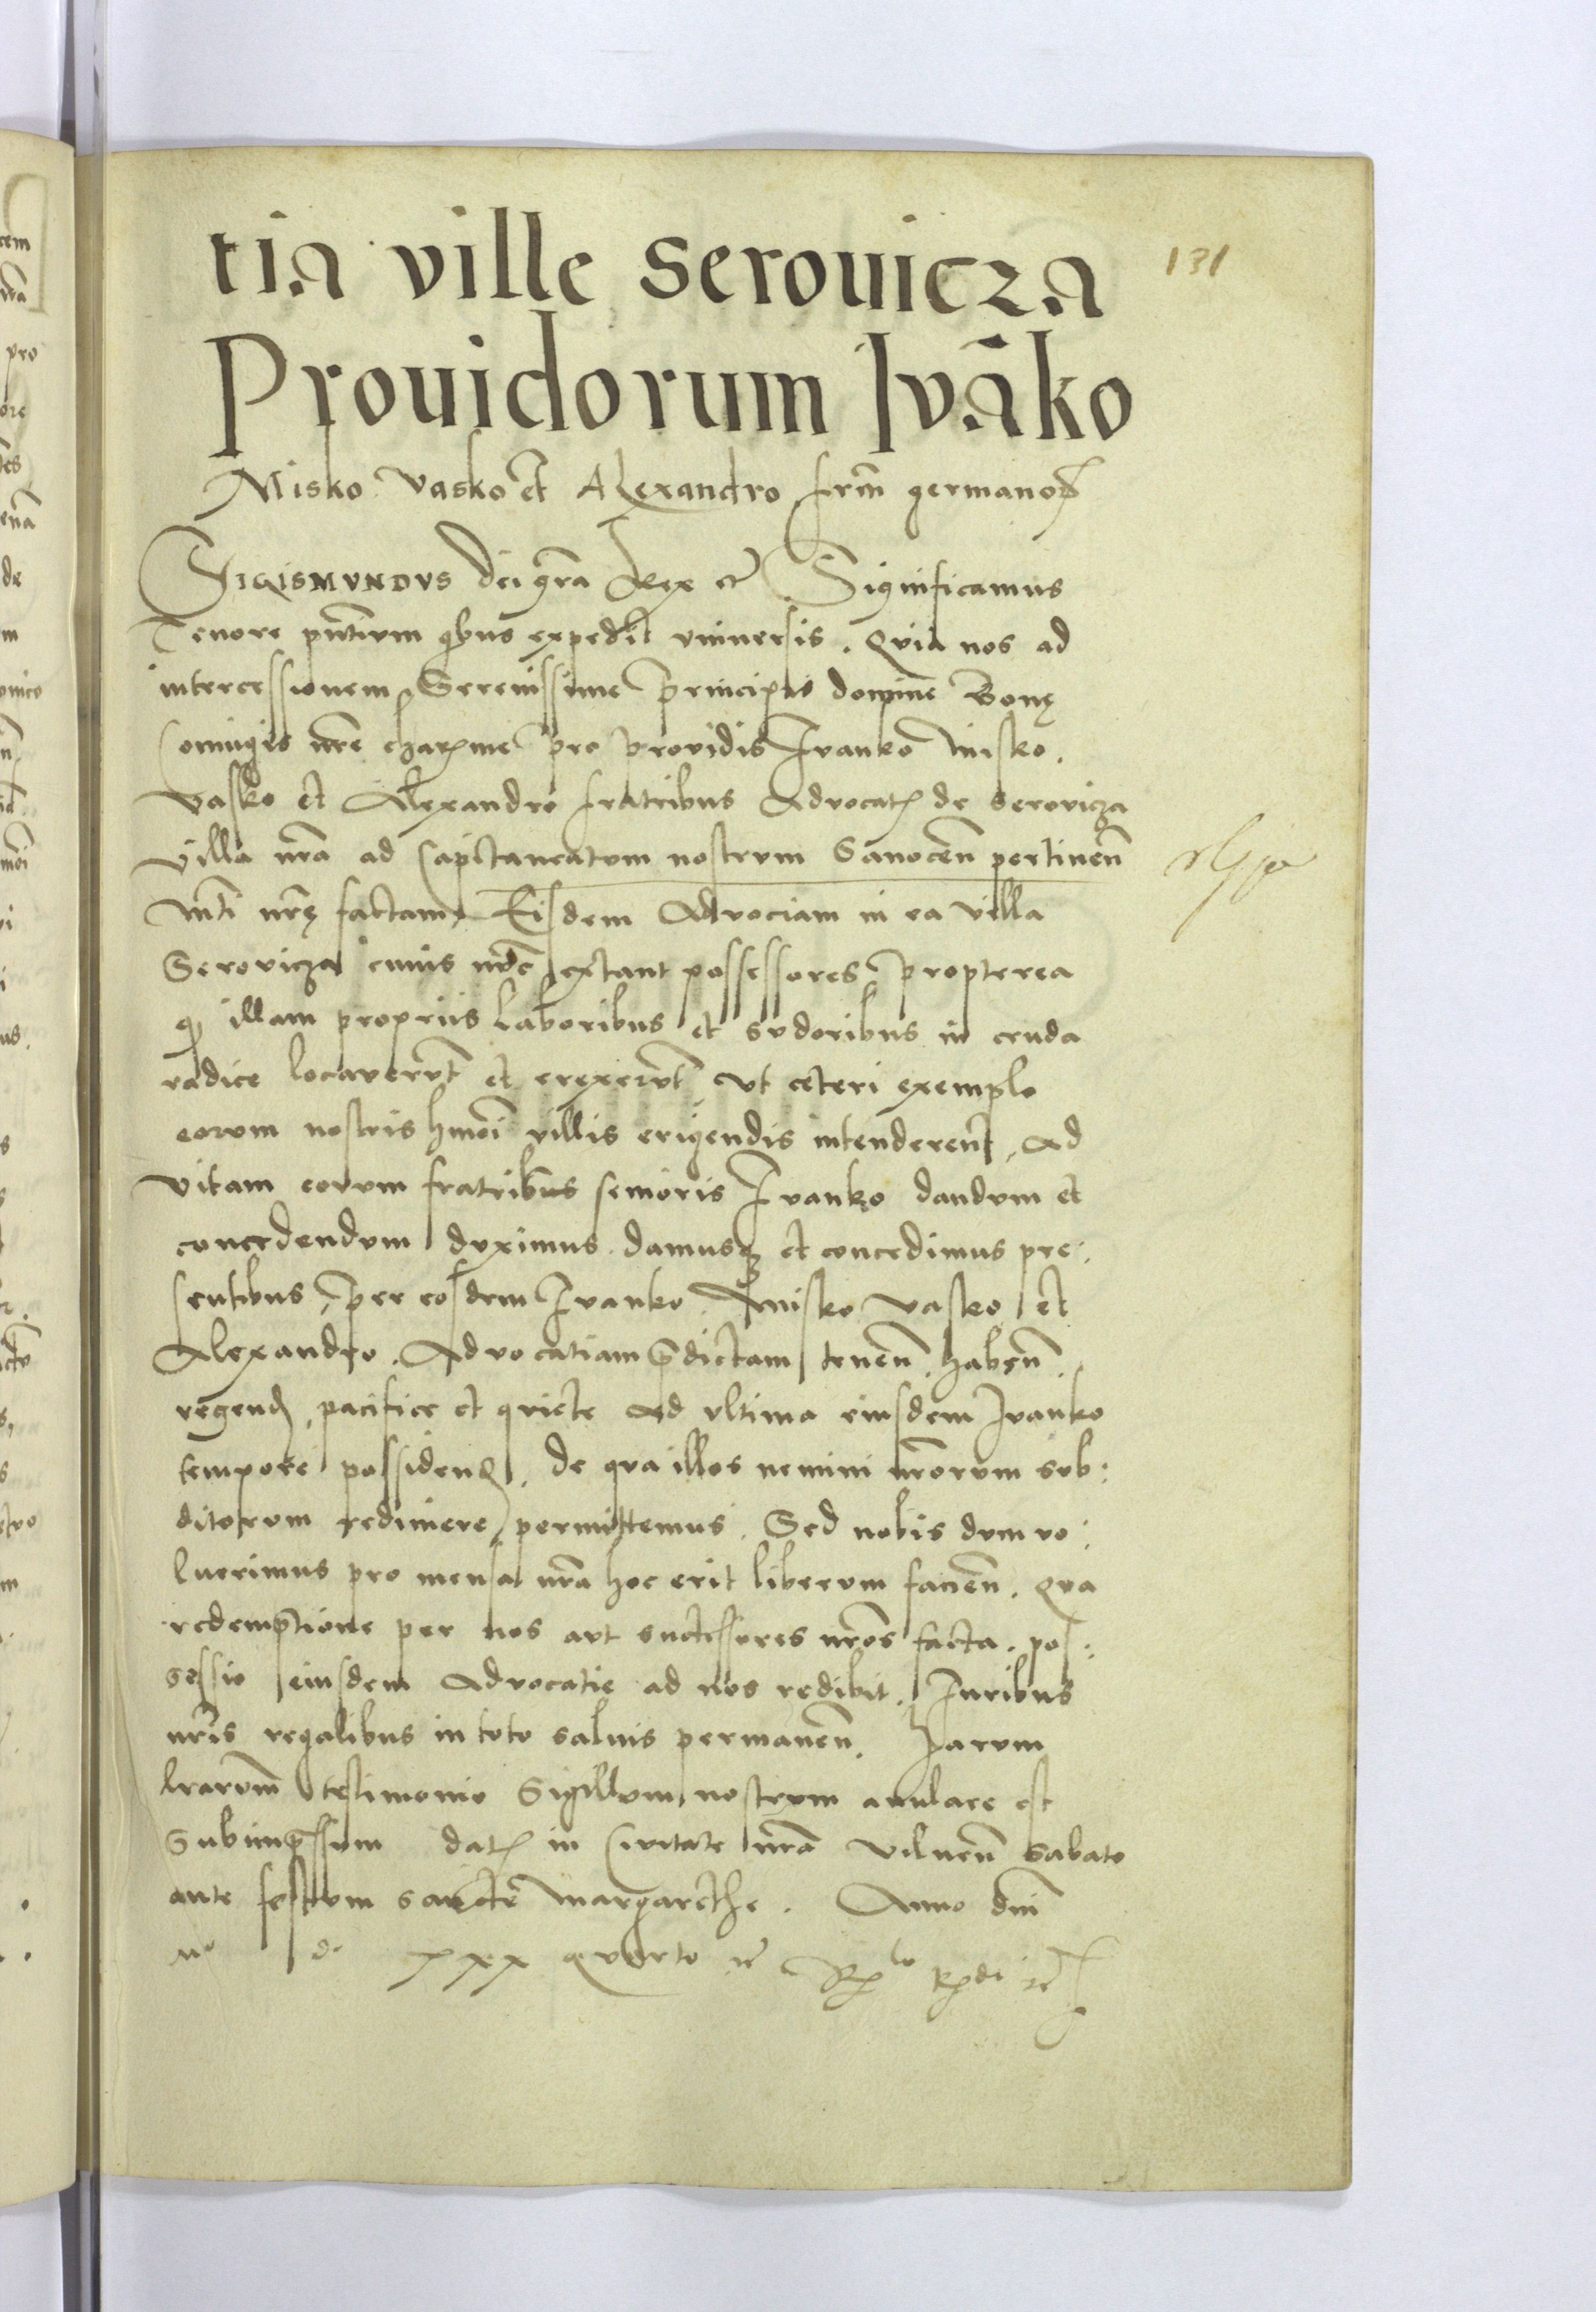 131
tia ville Serouicza
Prouidorum Ivāko
Misko Vasko et Alexandro frm̃ germanoꝝ
SIGISMVNDVS dei gr̃a Rex et̃ Significamus
Tenore pñtivm qbus expedit vniuersis. Qvia nos ad
intercessionem Serenissime principis domine Bonę
Coniugis nr̃e charme pro providis Ivanko Misko.
Vasko et Alexandro fratribus Advocat̃ de Serovicza
Villa nr̃a ad Capitaneatvm nostrvm Sanoceñ pertineñ
Mti nr̃ę factam Eisdem Advociam in ea villa
Serovicza cuius nũc extant possessores propterea
ꝙ illam propriis laboribus et svdoribus in cruda
radice locavervt̃ et erexervt̃ vt ceteri exemplo
eorvm nostris hmõi villis erigendis intenderent, Ad
vitam eorvm fratribus senioris Ivanko dandvm et
concedendvm dvximus damusqꝫ et concedimus pre
sentibus, per eosdem Ivanko Misko Vasko et
Alexandro. Advocatiam p̃dictam teneñ. habeñ.
regend̃, pacifice et qviete Ad vltima eiusdem Ivanko
tempore possidend̃. de qva illos nemini nr̃orvm svb:
ditorvm redimere permittemus. Sed nobis dvm vo:
luerimus pro mensa nr̃a hoc erit libervm facieñ. Qva
redemptione per nos avt successores nr̃os facta. pos:
sessio eiusdem Advocatie ad nos redibit. Iuribus
nr̃is regalibus in toto saluis permaneñ. Harvm
lrarvm̃ testimonio Sigillvm nostrvm anulare est
Subimp̃ssvm dat̃ in Civitate nr̃a Vilneñ Sabato
ante festvm sancte Margarethe. Anno dñi
Mº dº XXX qvarto